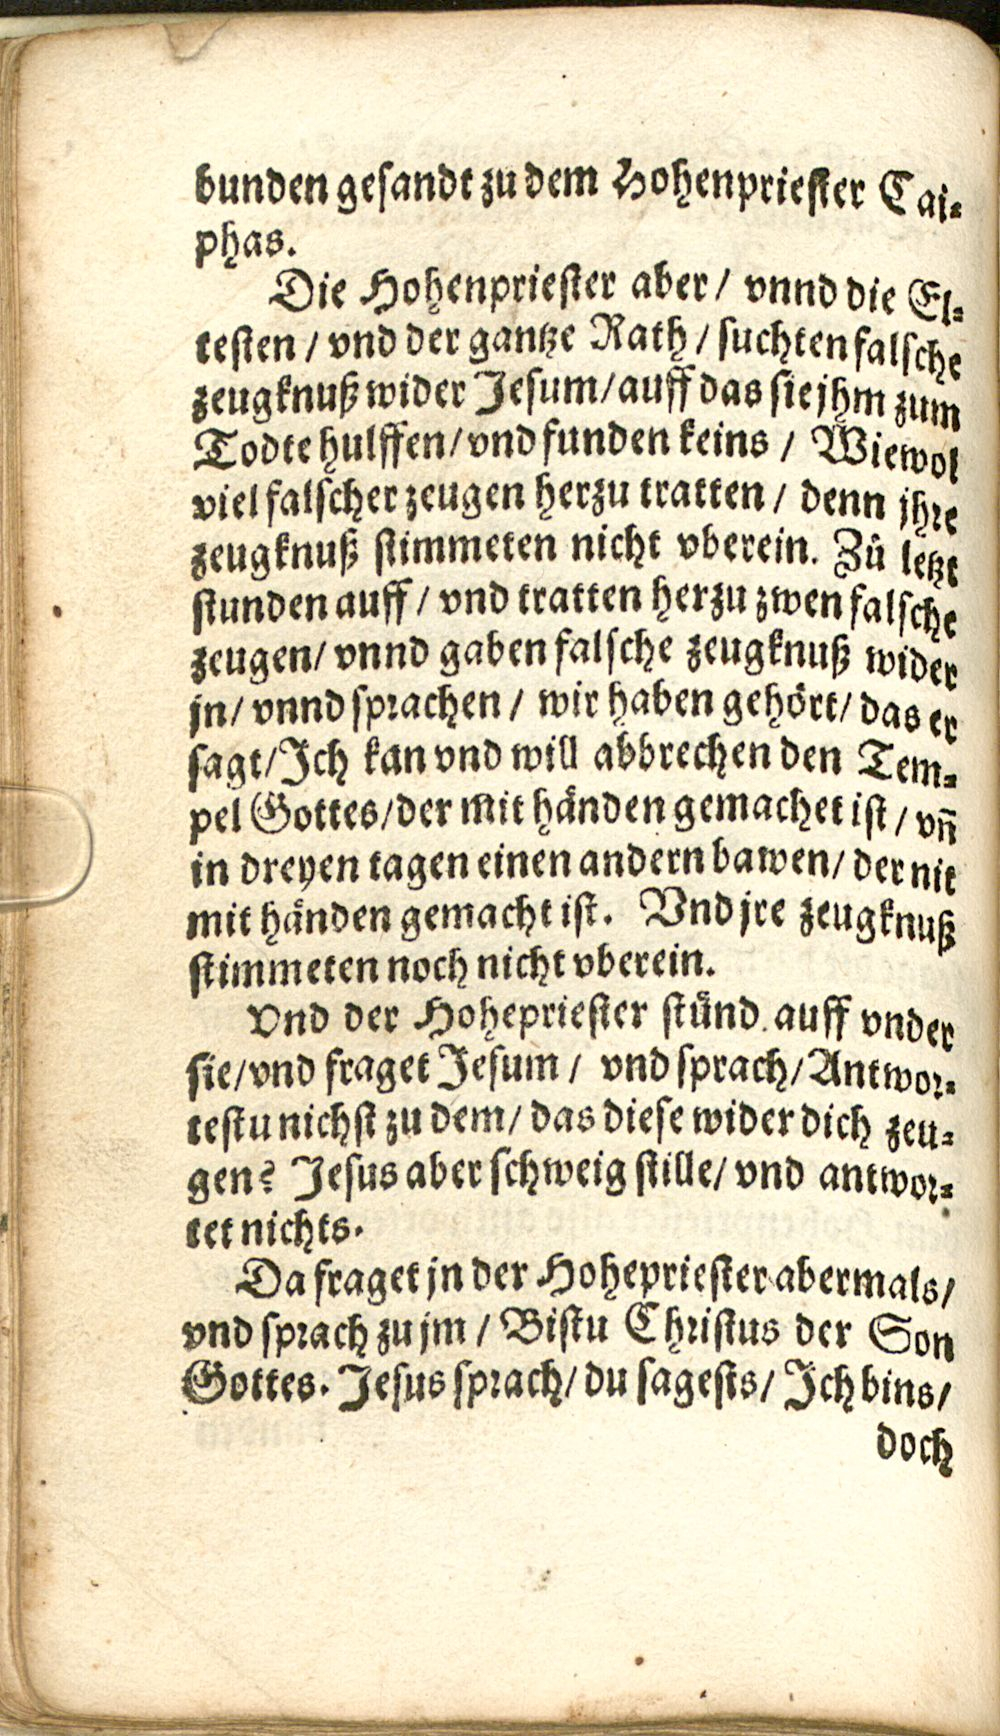 bunden gesandt zu dem Hohenpriester Cai⸗
phas.
Die Hohenpriester aber / vnnd die El⸗
testen / vnd der gantze Rath / suchten falsche
zeugknuß wider Jesum / auff das sie jhm zum
Todte hulffen / vnd funden keins / Wiewol
viel falscher zeugen herzu tratten / denn jhre
zeugknuß stimmeten nicht vberein. Zů letzt
stunden auff / vnd tratten herzu zwen falsche
zeugen / vnnd gaben falsche zeugknuß wider
jn / vnnd sprachen / wir haben gehört / das er
sagt / Ich kan vnd will abbrechen den Tem⸗
pel Gottes / der mit händen gemachet ist / vñ
in dreyen tagen einen andern bawen / der nit
mit händen gemacht ist. Vnd jre zeugknuß
stimmeten noch nicht vberein.
Vnd der Hohepriester stůnd auff vnder
sie / vnd fraget Jesum / vnd sprach / Antwor⸗
testu nichst zu dem / das diese wider dich zeu⸗
gen? Jesus aber schweig stille / vnd antwor⸗
tet nichts.
Da fraget jn der Hohepriester abermals /
vnd sprach zu jm / Bistu Christus der Son
Gottes. Jesus sprach / du sagests / Ich bins /
doch